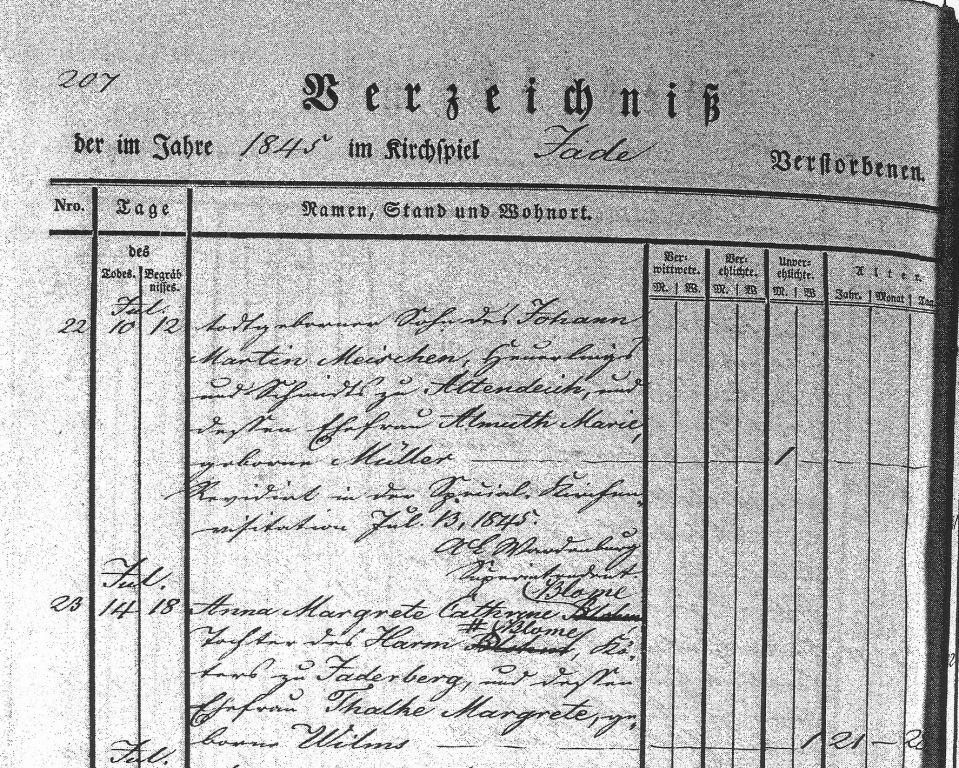 207
Verzeichniß
der im Jahre 1845 im Kirchspiel Jade Verstorbenen.
Nro. Tage Namen, Stand und Wohnort.
des
Todes. Begräbnisses.
Verwittwete. Verehlichte. Unverehlichte. Alter.
M. W. M. W. M. W. Jahr. Monat Tag
Jul.
22 10 12 todtgeborner Sohn des Johann
Martin Meischen, Heuerlings
und Schmidts zu Altendeich, und
dessen Ehefrau Almuth Marie,
geborne Müller — 1
Revidirt in der Special-Kirchen-
visitation Jul. 13, 1845.
Wardenburg
Superintendent.
Jul. Blome
23 14 18 Anna Margrete Cathrine
# Blome
Tochter des Harm , Kö-
ters zu Jaderberg, und dessen
Ehefrau Thalke Margrete, ge-
borne Wilms — 1 21 —
Jul.